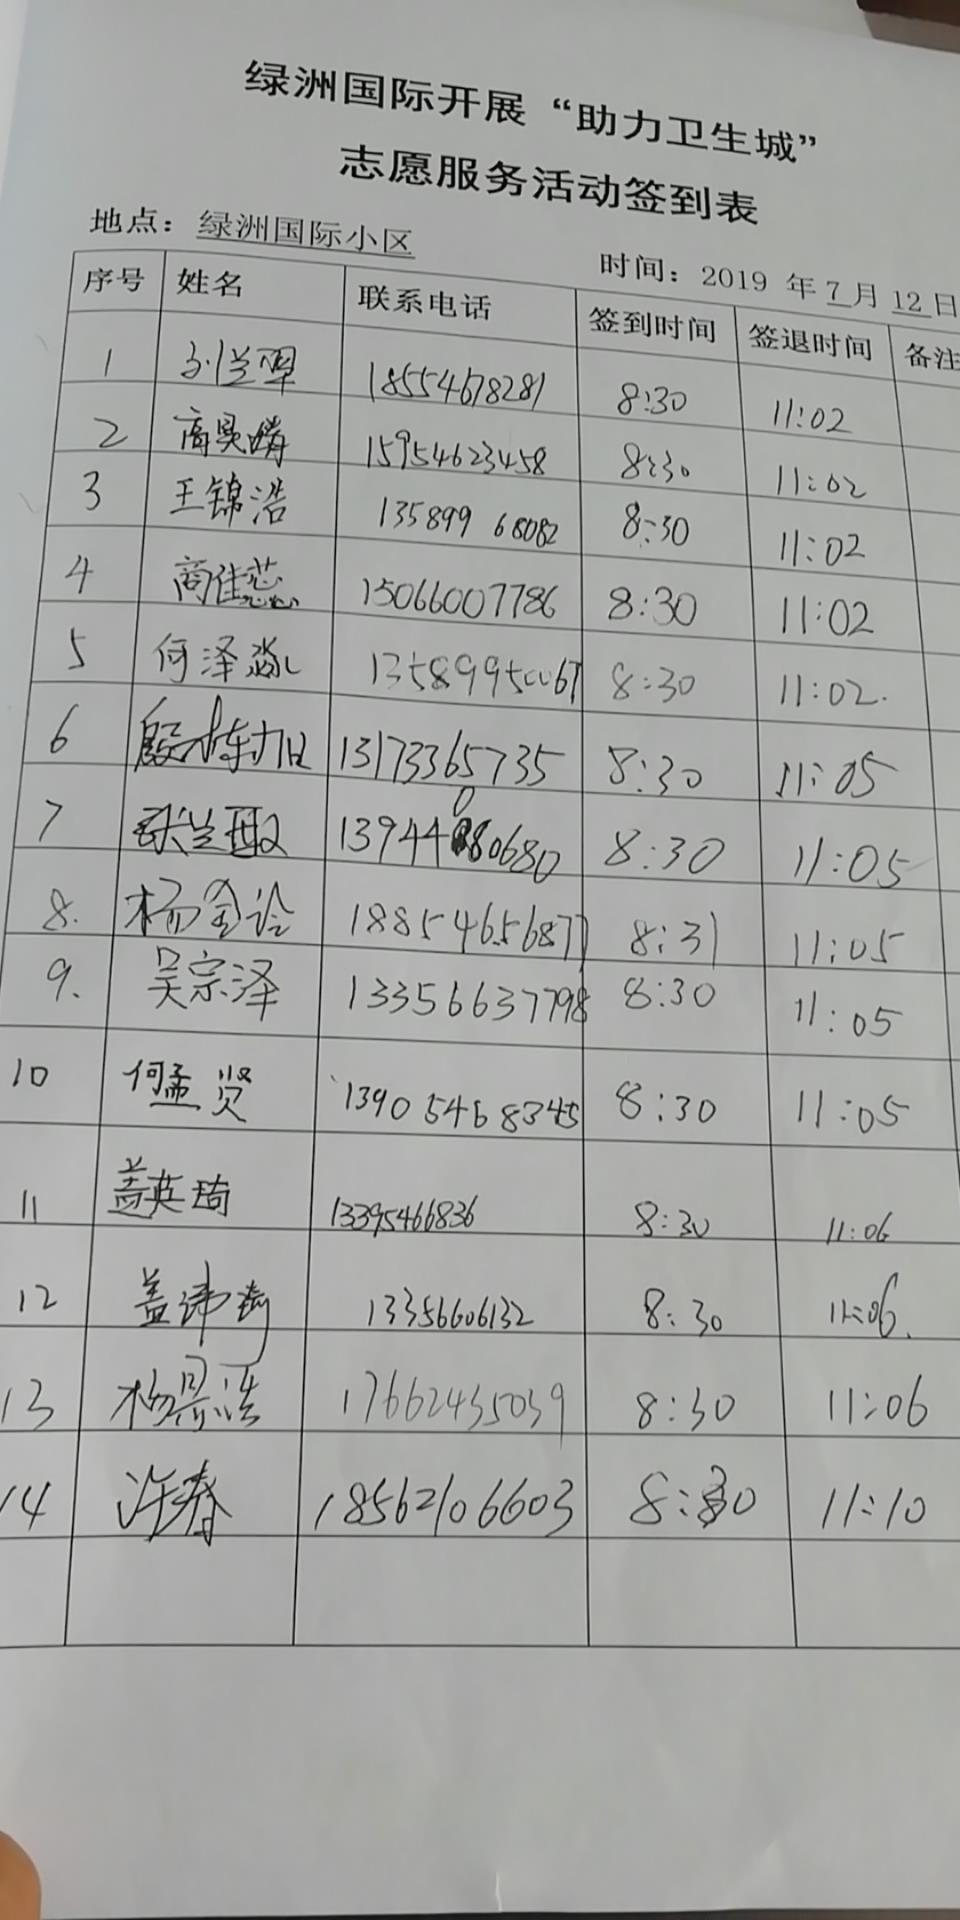 绿洲国际开展“助力卫生城”
志愿服务活动签到表
地点：绿洲国际小区
时间：2019 年 7 月 12 日
序号 姓名 联系电话 签到时间 签退时间 备注
1 18554678281 8:30 11:02
2 15954623458 8:30 11:02
3 王锦浩 135899 68082 8:30 11:02
4 商佳蕊 15066007786 8:30 11:02
5 何泽淼 13589950067 8:30 11:02.
6 13173365735 8:30 11:05
7 8:30 11:05
8. 杨金诠 18854656877 8:31 11:05
9. 吴宗泽 13356637798 8:30 11:05
10 何孟贤 13905468345 8:30 11:05
11 盖英琦 13395466836 8:30 11:06
12 盖 13356606132 8:30 11:06.
13 杨景浩 17662435039 8:30 11:06
14 许春 18562106603 8:30 11:10